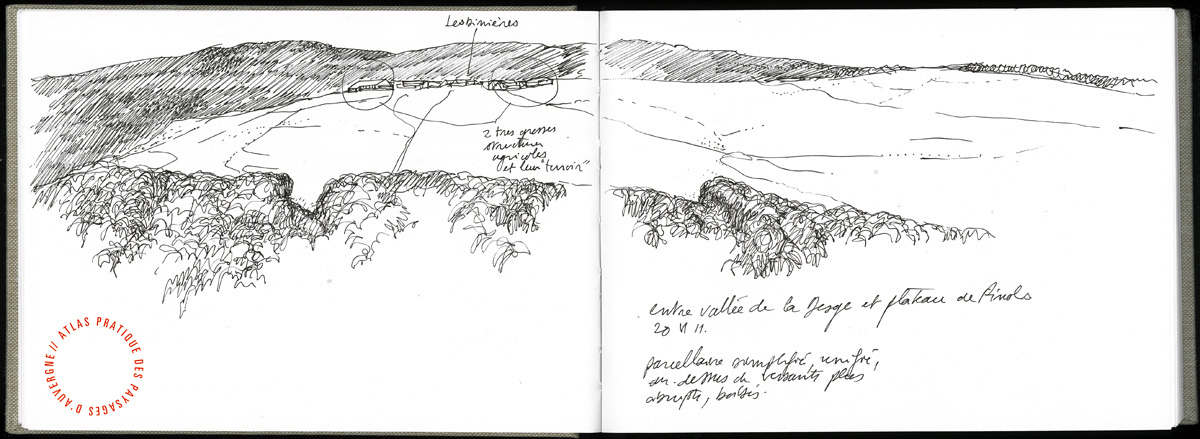 Lesbinières
2 très grosses
structures
agricoles
et leur "terroir"
entre vallée de la Desge et plateau de Pinols
20 VI 11.
parcellaire simplifié, unifié,
au-dessus de versants plus
abrupts, boisés.
ATLAS PRATIQUE DES PAYSAGES D'AUVERGNE //